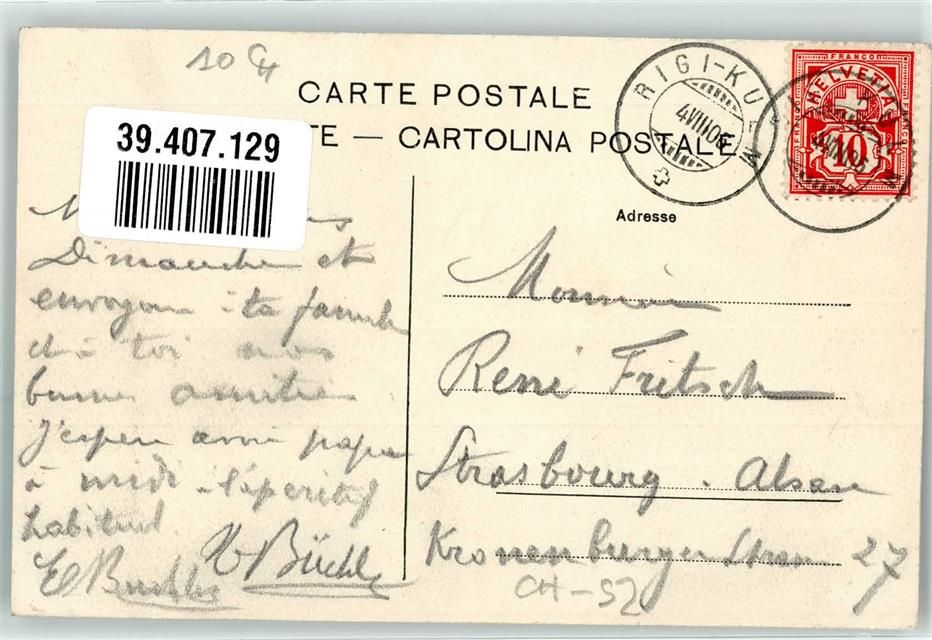 10 CH
CARTE POSTALE
TE — CARTOLINA POSTALE
39.407.129
RIGI-KULM
4 VIII 06
FRANCO
HELVETIA
10
Adresse
Dimanche et
envoyons à ta famille
et à toi nos
bonnes amitiés
J'espère papa
à midi l'apéritif
habituel
Büchl
Monsieur
René Fritsch
Strasbourg. Alsace
Kronenburger Strasse 27
CH-SZ